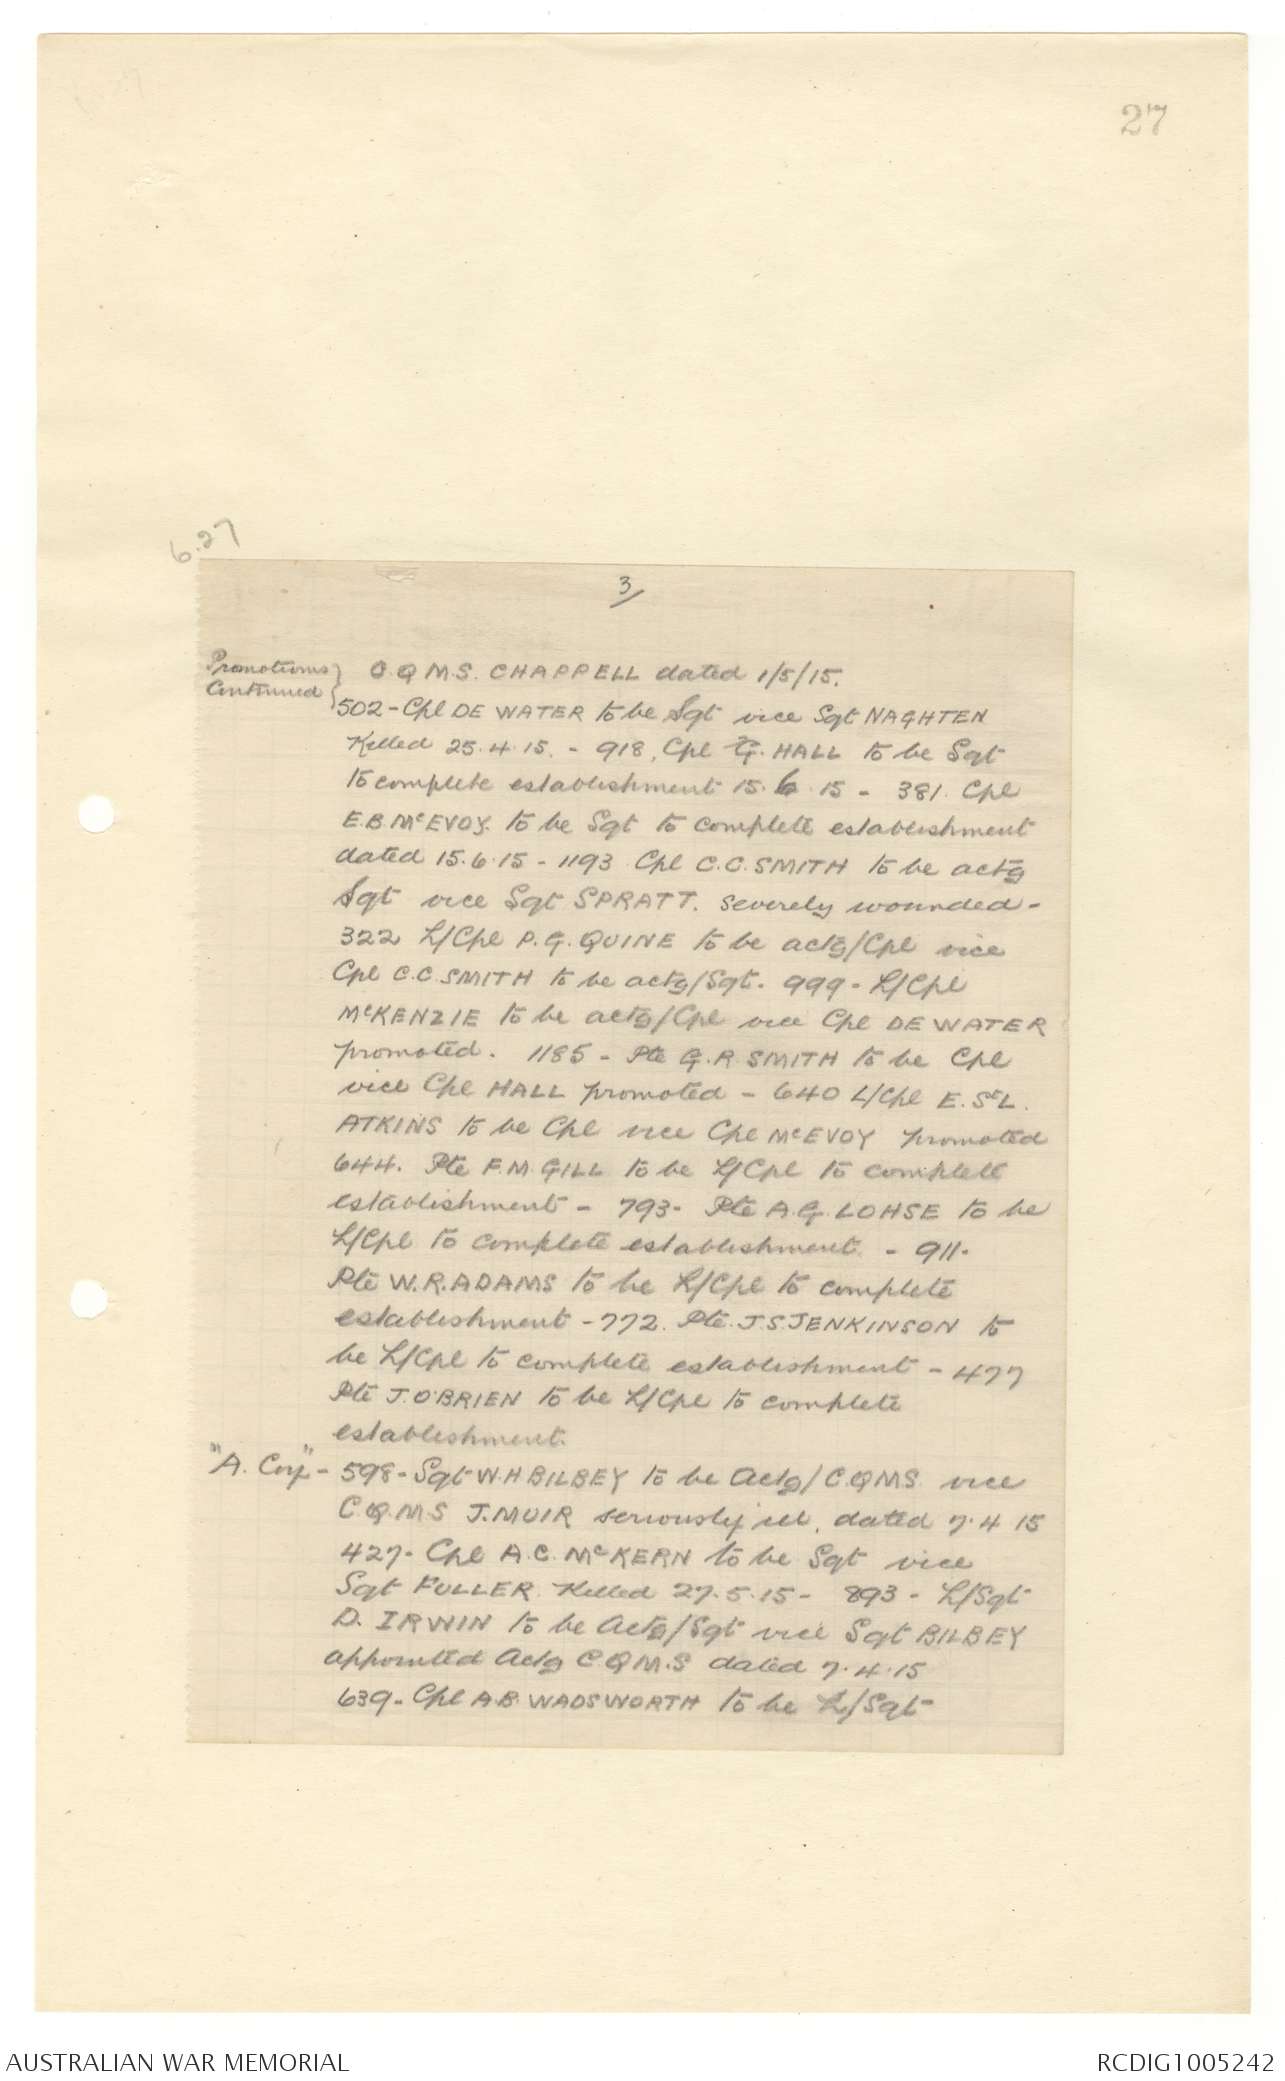 27
6.27
3/
Promotions } C.Q.M.S. CHAPPELL dated 1/5/15.
Continued }
502 - Cpl DE WATER to be Sgt vice Sgt NAGHTEN
Killed 25.4.15. - 918, Cpl G. HALL to be Sgt
to complete establishment 15.6.15 - 381. Cpl
E.B. McEVOY. to be Sgt to complete establishment
dated 15.6.15 - 1193 Cpl C.C. SMITH to be actg
Sgt vice Sgt SPRATT. severely wounded -
322 L/Cpl P.G. QUINE to be actg/Cpl vice
Cpl C.C. SMITH to be actg/Sgt. 999 - L/Cpl
McKENZIE to be actg/Cpl vice Cpl DE WATER
promoted. 1185 - Pte G.R. SMITH to be Cpl
vice Cpl HALL promoted - 640 L/Cpl E. St L.
ATKINS to be Cpl vice Cpl McEVOY promoted
644. Pte F.M. GILL to be L/Cpl to complete
establishment - 793 - Pte A.G. LOHSE to be
L/Cpl to complete establishment. - 911 -
Pte W.R. ADAMS to be L/Cpl to complete
establishment - 772. Pte. J.S. JENKINSON to
be L/Cpl to complete establishment - 477
Pte J. O'BRIEN to be L/Cpl to complete
establishment.
"A. Coy" - 598 - Sgt W.H BILBEY to be Actg/C.Q.M.S. vice
C.Q.M.S J. MUIR seriously ill, dated 7.4 15
427 - Cpl A.C. McKERN to be Sgt vice
Sgt FULLER. Killed 27.5.15 - 893 - L/Sgt
D. IRWIN to be Actg/Sgt vice Sgt BILBEY
appointed Actg C.Q.M.S dated 7.4.15
639 - Cpl A.B. WADSWORTH to be L/Sgt
AUSTRALIAN WAR MEMORIAL
RCDIG1005242